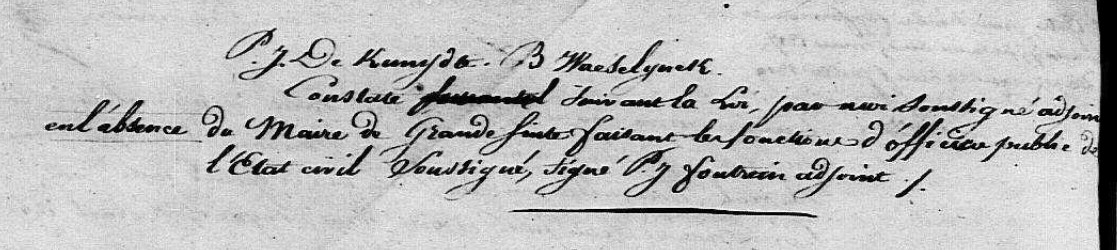 P. J. De Kunydt. B Waeselynck.
Constaté suivant la Loi, par moi Soussigné adjoin
en l'absence du Maire de Grande Sinte faisant les fonctions d'officier public de
l'Etat civil Soussigné, signé P. J foutrein adjoint /.